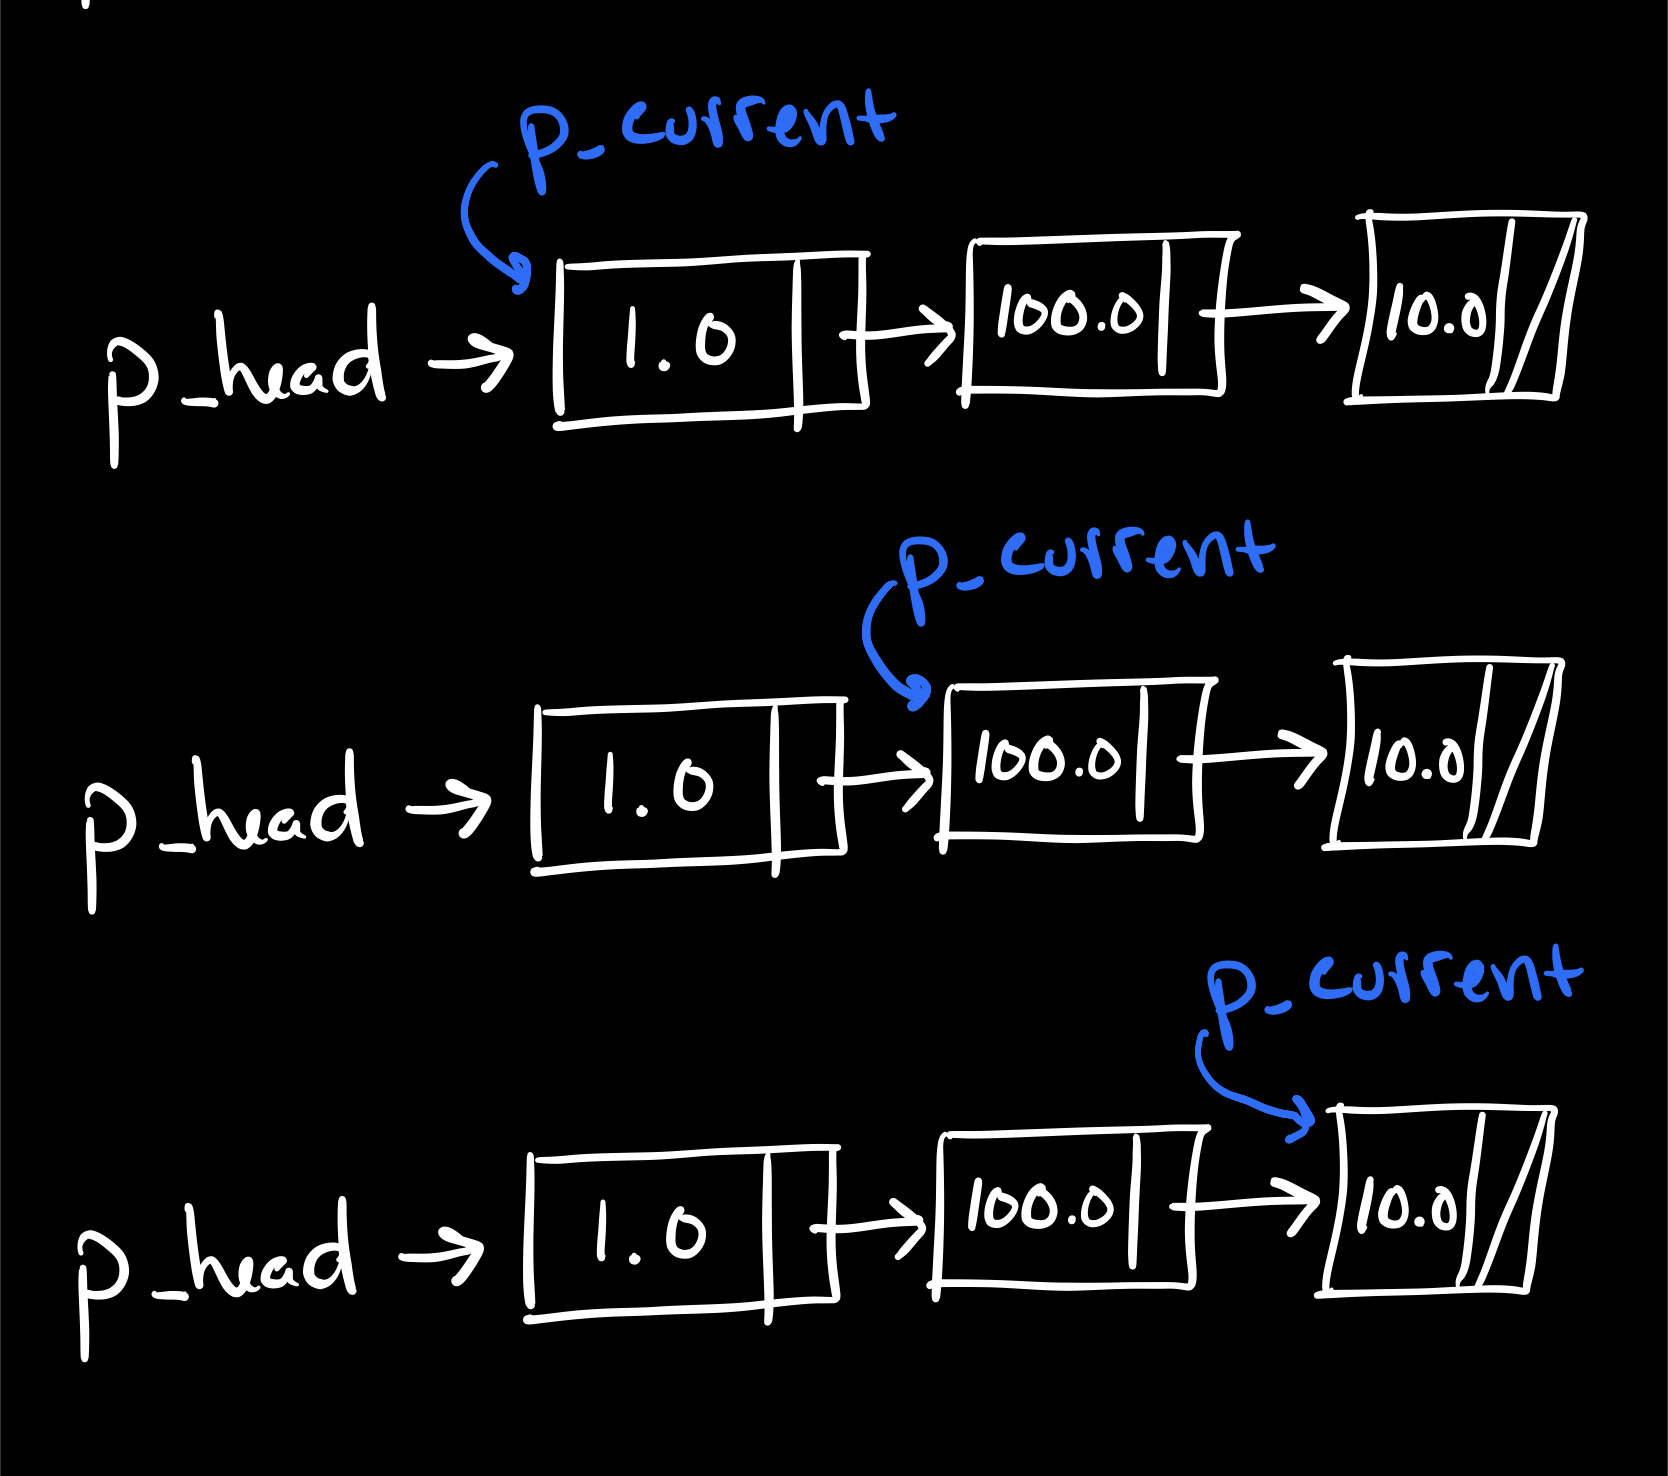 p_current
p_head → 1.0 → 100.0 → 10.0
p_current
p_head → 1.0 → 100.0 → 10.0
p_current
p_head → 1.0 → 100.0 → 10.0